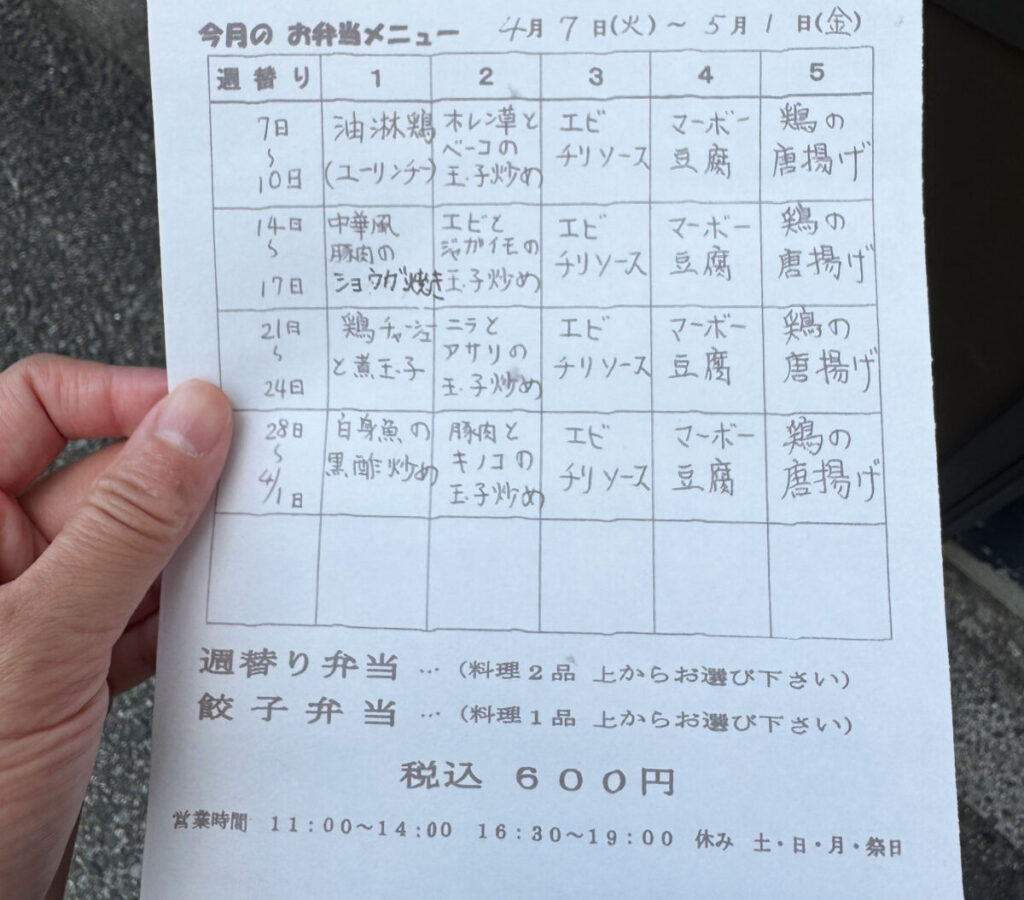 今月の お弁当メニュー 4月7日(火)～5月1日(金)
週替り 1 2 3 4 5
7日～10日
油淋鶏
(ユーリンチー)
ホレン草と
ベーコの
玉子炒め
エビ
チリソース
マーボー
豆腐
鶏の
唐揚げ
14日～17日
中華風
豚肉の
ショウガ焼き
エビと
ジャガイモの
玉子炒め
エビ
チリソース
マーボー
豆腐
鶏の
唐揚げ
21日～24日
鶏チャーシュー
と煮玉子
ニラと
アサリの
玉子炒め
エビ
チリソース
マーボー
豆腐
鶏の
唐揚げ
28日～4/1日
白身魚の
黒酢炒め
豚肉と
キノコの
玉子炒め
エビ
チリソース
マーボー
豆腐
鶏の
唐揚げ
週替り弁当 … (料理2品 上からお選び下さい)
餃子弁当 … (料理1品 上からお選び下さい)
税込 600円
営業時間 11:00～14:00 16:30～19:00 休み 土・日・月・祭日